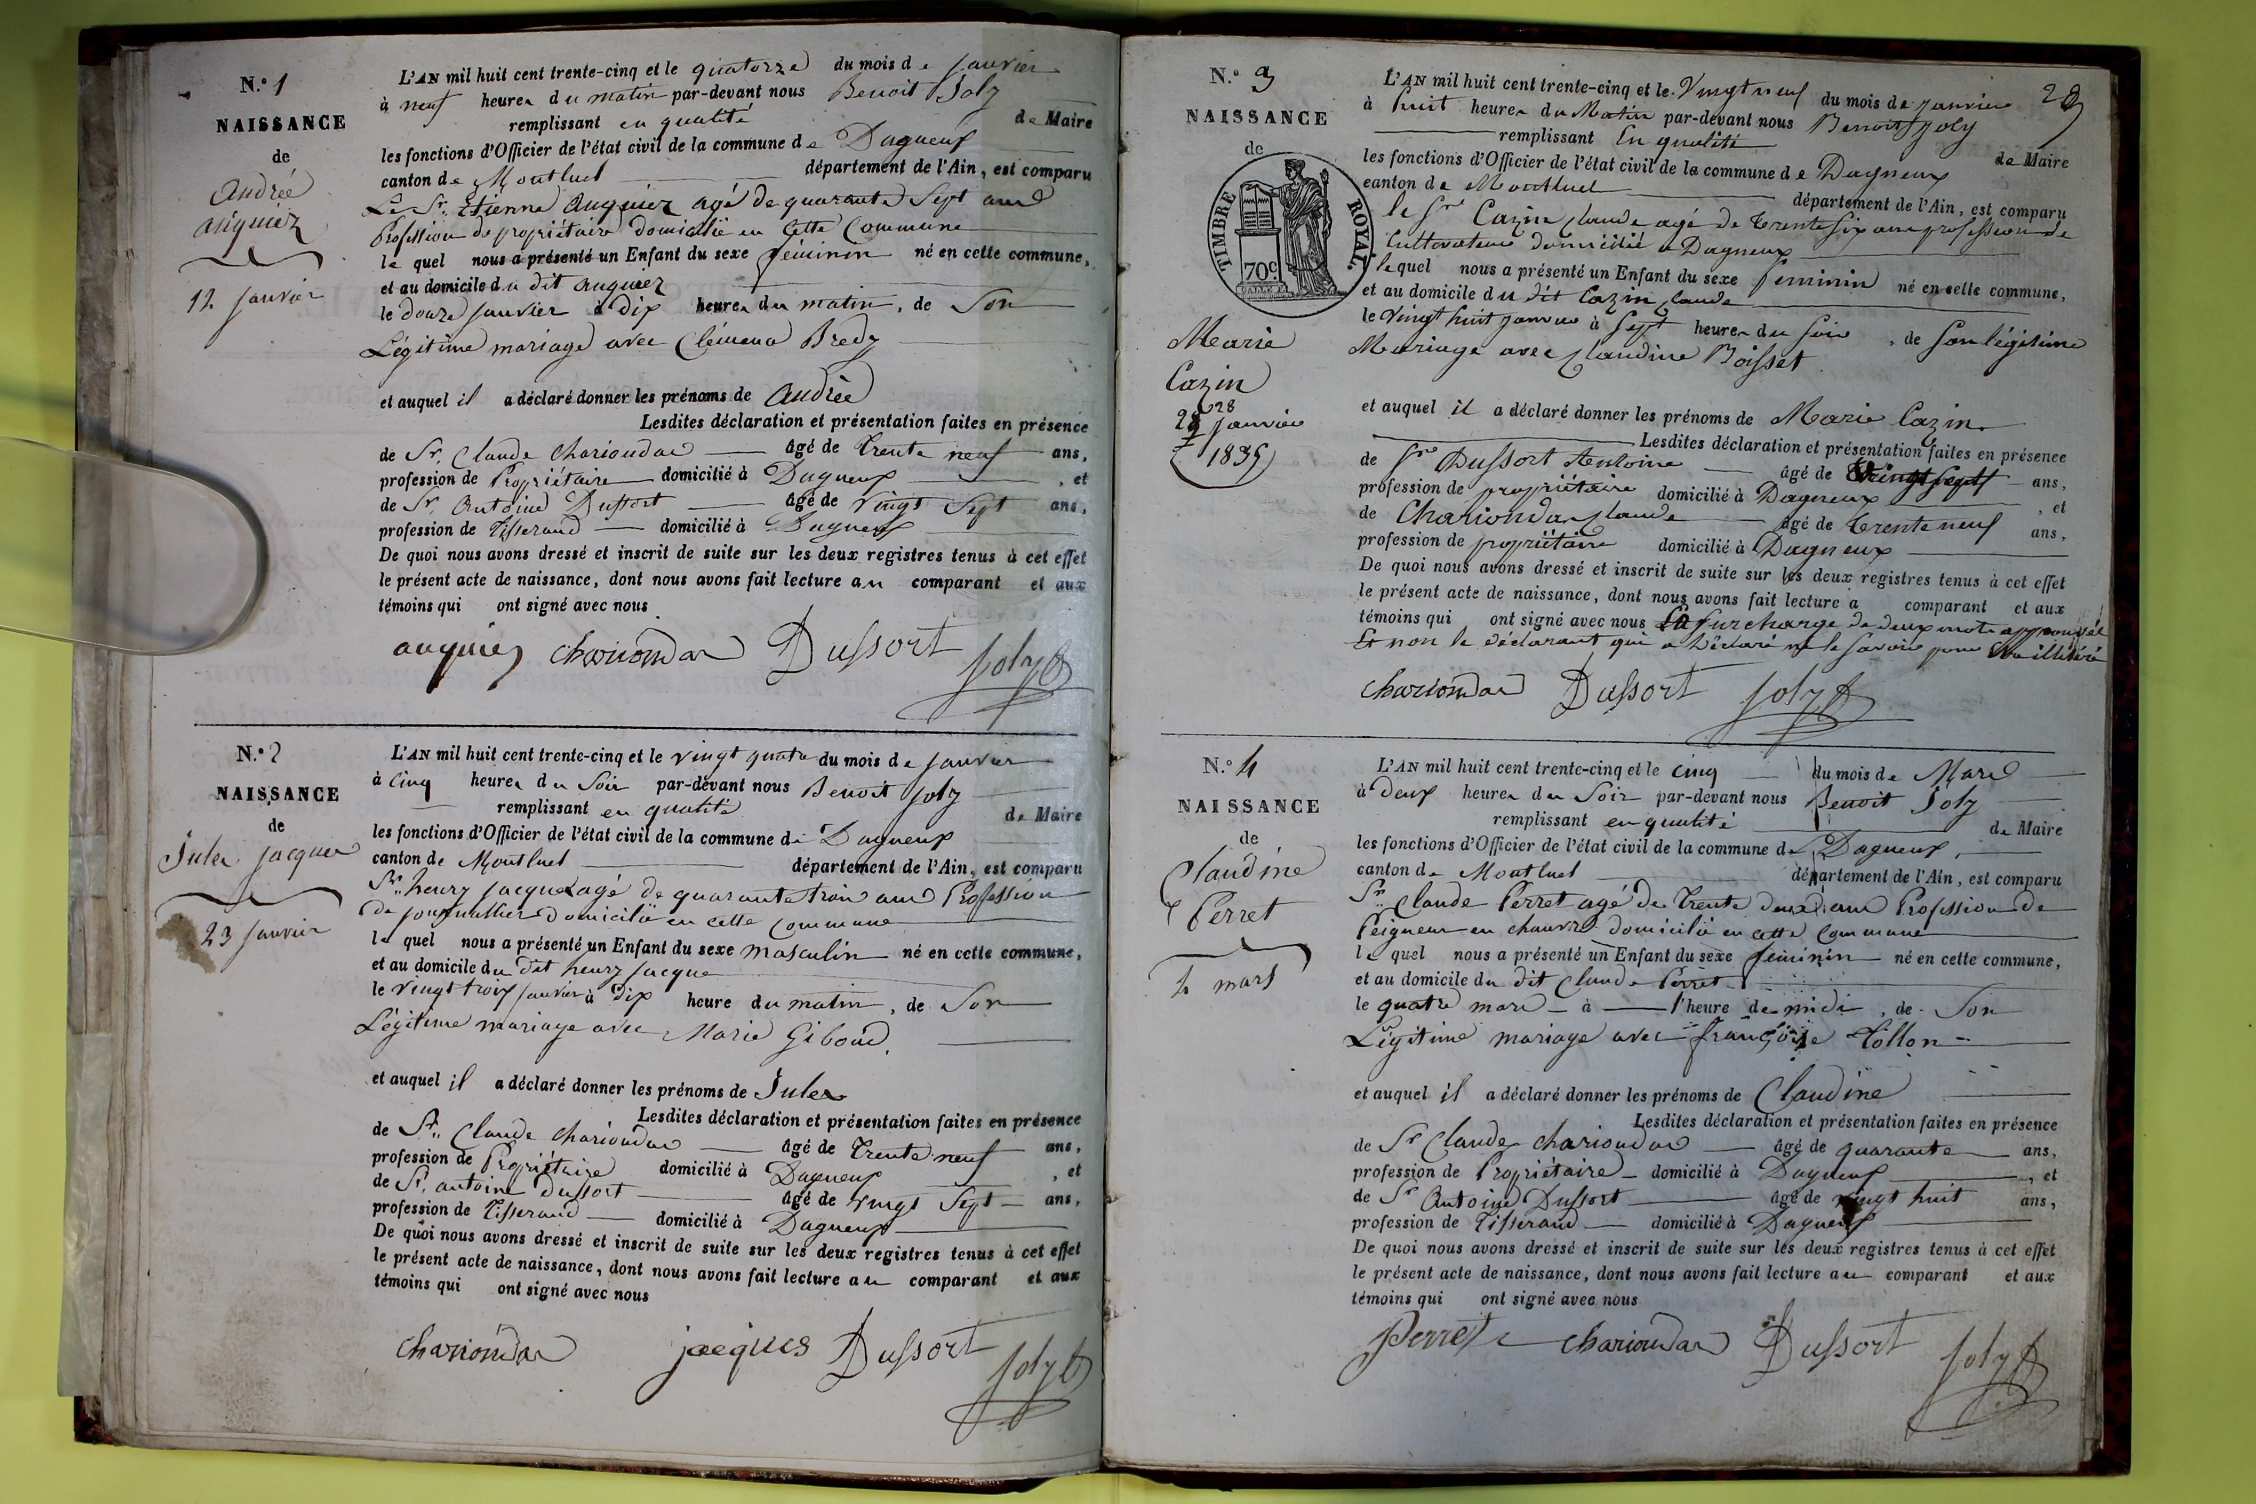 N.° 1
NAISSANCE
de
Andrée
auguiez
12 Janvier
L'AN mil huit cent trente-cinq et le quatorze du mois de Janvier
à neuf heures du matin par-devant nous Benoit Joly
remplissant en qualité de Maire
les fonctions d'Officier de l'état civil de la commune de Dagneux
canton de Montluel département de l'Ain, est comparu
Le Sr. Etienne Auguiez agé de quarante Sept ans
Profession de propriétaire domicilié en Cette Commune
le quel nous a présenté un Enfant du sexe féminin né en cette commune,
et au domicile du dit auguiez
le douze Janvier à dix heures du matin, de Son
Légitime mariage avec Clémence Bredy
et auquel il a déclaré donner les prénoms de Andrée
Lesdites déclaration et présentation faites en présence
de Sr. Claude Chariondar âgé de trente neuf ans,
profession de Propriétaire domicilié à Dagneux, et
de Sr. Antoine Dussort âgé de vingt Sept ans,
profession de Tisserand domicilié à Dagneux
De quoi nous avons dressé et inscrit de suite sur les deux registres tenus à cet effet
le présent acte de naissance, dont nous avons fait lecture au comparant et aux
témoins qui ont signé avec nous
auguiez Chariondar Dussort Joly
N.° 2
NAISSANCE
de
Jules Jacques
23 Janvier
L'AN mil huit cent trente-cinq et le vingt quatre du mois de Janvier
à Cinq heures du Soir par-devant nous Benoit Joly
remplissant en qualité de Maire
les fonctions d'Officier de l'état civil de la commune de Dagneux
canton de Montluel département de l'Ain, est comparu
Sr. henry Jacques agé de quarante trois ans Profession
de journallier domicilié en cette Commune
le quel nous a présenté un Enfant du sexe masculin né en cette commune,
et au domicile du dit henry Jacque
le vingt trois Janvier à dix heure du matin, de Son
Légitime mariage avec Marie Giboud.
et auquel il a déclaré donner les prénoms de Jules
Lesdites déclaration et présentation faites en présence
de Sr. Claude Chariondar âgé de trente neuf ans,
profession de Propriétaire domicilié à Dagneux, et
de Sr. antoine Dussort âgé de vingt Sept ans,
profession de Tisserand domicilié à Dagneux
De quoi nous avons dressé et inscrit de suite sur les deux registres tenus à cet effet
le présent acte de naissance, dont nous avons fait lecture au comparant et aux
témoins qui ont signé avec nous
Chariondar jacques Dussort Joly
N.° 3
NAISSANCE
de
TIMBRE ROYAL.
70c.
Marie
Cazin
28
Janvier
1835
L'AN mil huit cent trente-cinq et le Vingt neuf du mois de janvier
à huit heures du Matin par-devant nous Benoit Joly
remplissant En qualité de Maire
les fonctions d'Officier de l'état civil de la commune de Dagneux
canton de Montluel département de l'Ain, est comparu
le Sr Cazin Claude agé de trente six ans profession de
Cultivateur domicilié a Dagneux
lequel nous a présenté un Enfant du sexe feminin né en cette commune,
et au domicile du dit Cazin Claude
le vingt huit janvier à Sept heures du soir, de son légitime
Mariage avec Claudine Boisset
et auquel il a déclaré donner les prénoms de Marie Cazin
Lesdites déclaration et présentation faites en présence
de Sr Dussort Antoine âgé de vingt sept ans,
profession de propriétaire domicilié à Dagneux, et
de Chariondar Claude âgé de trente neuf ans,
profession de propriétaire domicilié à Dagneux
De quoi nous avons dressé et inscrit de suite sur les deux registres tenus à cet effet
le présent acte de naissance, dont nous avons fait lecture a comparant et aux
témoins qui ont signé avec nous La surcharge de deux mots approuvée
Et non le déclarant qui a Déclaré ne le savoir pour être illitéré
Chariondar Dussort Joly
N.° 4
NAISSANCE
de
Claudine
Perret
4 mars
L'AN mil huit cent trente-cinq et le cinq du mois de Mars
à Deux heures du Soir par-devant nous Benoit Joly
remplissant en qualité de Maire
les fonctions d'Officier de l'état civil de la commune de Dagneux,
canton de Montluel département de l'Ain, est comparu
Sr. Claude Perret agé de Trente deux ans Profession de
Peigneur en chanvre domicilié en cette Commune
le quel nous a présenté un Enfant du sexe féminin né en cette commune,
et au domicile du dit Claude Perret
le quatre mars à l'heure de midi, de Son
Légitime mariage avec françoise Tollon
et auquel il a déclaré donner les prénoms de Claudine
Lesdites déclaration et présentation faites en présence
de Sr Claude Chariondar âgé de quarante ans,
profession de Propriétaire domicilié à Dagneux, et
de Sr Antoine Dussort âgé de vingt huit ans,
profession de Tisserand domicilié à Dagneux
De quoi nous avons dressé et inscrit de suite sur les deux registres tenus à cet effet
le présent acte de naissance, dont nous avons fait lecture au comparant et aux
témoins qui ont signé avec nous
Perret Chariondar Dussort Joly